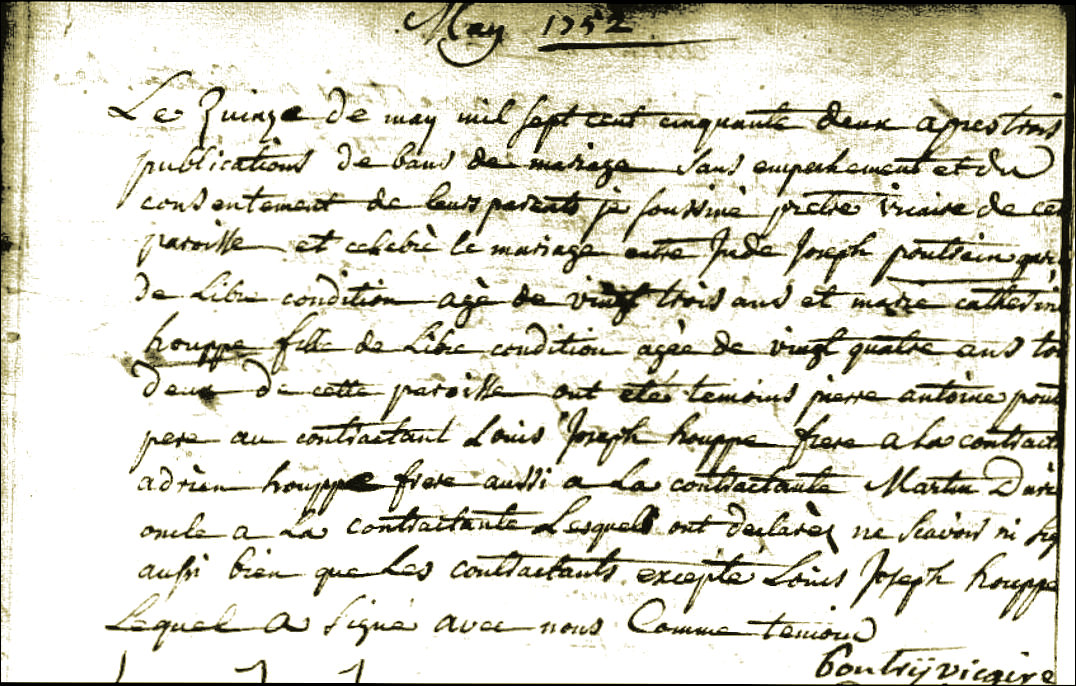 May 1752
Le Quinze de may mil sept cent cinquante deux apres trois
publications de bans de mariage sans empechement et du
consentement de leurs parents je soussinè pretre vicaire de cet
paroisse et celebrè le mariage entre Jude Joseph poutrain
de Libre condition agè de vingt trois ans et marie catherin
houppe fille de Libre condition agèe de vingt quatre ans to
deux de cette paroisse ont etés temoins pierre antoine pout
pere au contractant Louis Joseph houppe frere a La contracta
adrien houppe frere aussi a La contractante Martin
oncle a La contractante Lesquels ont declarès ne scavoir ni sig
aussi bien que Les contractants excepté Louis Joseph houppe
Lequel a signé avec nous Comme temoin
vicaire